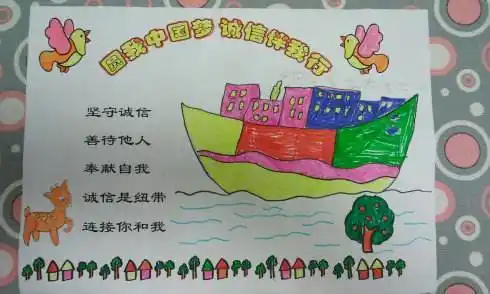 圆我中国梦 诚信伴我行
坚守诚信
善待他人
奉献自我
诚信是纽带
连接你和我